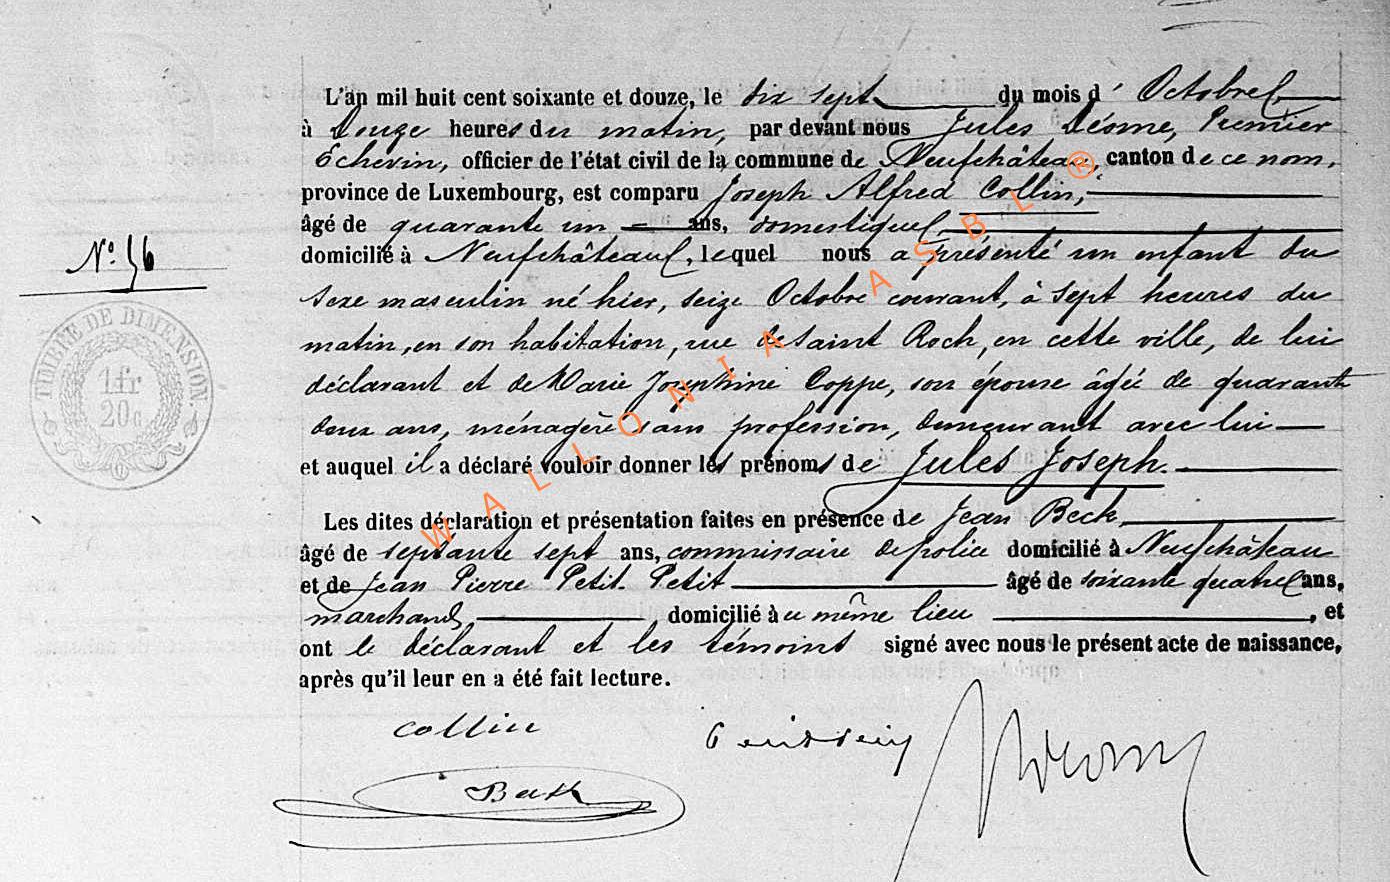 L'an mil huit cent soixante et douze, le dix sept du mois d' Octobre
à Douze heures du matin, par devant nous Jules Désome, Premier
Echevin, officier de l'état civil de la commune de Neufchâteau, canton de ce nom,
province de Luxembourg, est comparu Joseph Alfred Collin,
âgé de quarante un ans, domestique,
domicilié à Neufchâteau, lequel nous a présenté un enfant du
N° 56
sexe masculin né hier, seize Octobre courant, à sept heures du
matin, en son habitation, rue de Saint Roch, en cette ville, de lui
déclarant et de Marie Joséphine Coppe, son épouse âgée de quarante
deux ans, ménagère sans profession, demeurant avec lui
et auquel il a déclaré vouloir donner les prénoms de Jules Joseph.
TIMBRE DE DIMENSION
1 fr
20 c
Les dites déclaration et présentation faites en présence de Jean Beck,
âgé de septante sept ans, commissaire de police domicilié à Neufchâteau
et de Jean Pierre Petit Petit âgé de soixante quatre ans,
marchand domicilié à ce même lieu , et
ont le déclarant et les témoins signé avec nous le présent acte de naissance,
après qu'il leur en a été fait lecture.
Collin
Beck
WALLONIA ASBL ®